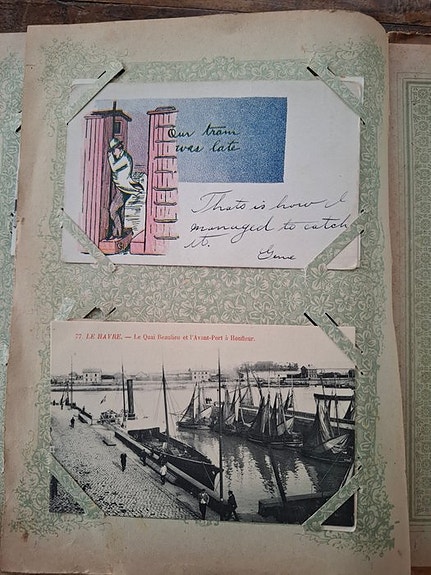 Our train
was late
Thats is how I
managed to catch
it.
Gene
77. LE HAVRE. — Le Quai Beaulieu et l'Avant-Port à Honfleur.